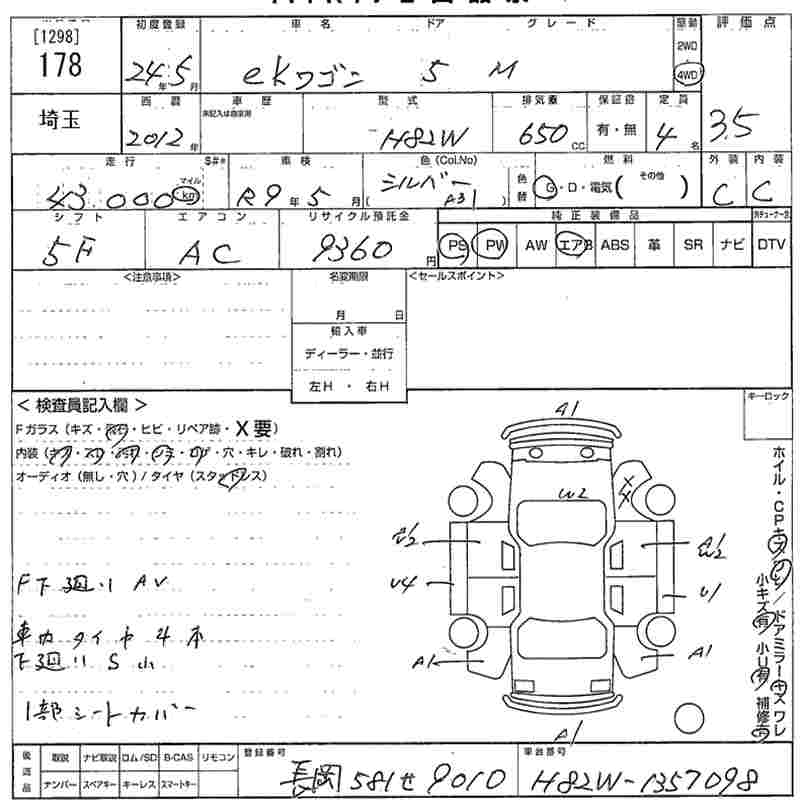 [1298]
178
初度登録 車名 ドア グレード 駆動 評価点
24年5月 ekワゴン 5 M 2WD 4WD
埼玉
西暦 車歴 型式 排気量 保証書 定員
未記入は自家用
2012年 H82W 650CC 有・無 4名 3.5
走行 S#* 車検 色(Col.No) 燃料 外装 内装
43,000 マイル km R9年5月 シルバー ( A31 ) 色替 G・D・電気( その他 ) C C
シフト エアコン リサイクル預託金 純正装備品
5F AC 9360円 PS PW AW エアB ABS 革 SR ナビ DTV
<注意事項> 名変期限 <セールスポイント>
月 日
輸入車
ディーラー・並行
左H ・ 右H
<検査員記入欄> キーロック
Fガラス(キズ・石・ヒビ・リペア跡・X要)
内装(キズ・スレ・汚れ・シミ・コゲ・穴・キレ・破れ・割れ)
オーディオ(無し・穴)/タイヤ(スタッドレス)
F下廻り AV
車内タイヤ4本
下廻りS小
1部シートカバー
A1
W2
XX
U4
U1
A1
A1
A1
ホイル・CPキズ/ドアミラーキズワレ
小キズ有 小U有 補修有
後送品 取説 ナビ取説 ロム/SD B-CAS リモコン 登録番号 車台番号
ナンバー スペアキー キーレス スマートキー 長岡 581せ9010 H82W-1357098